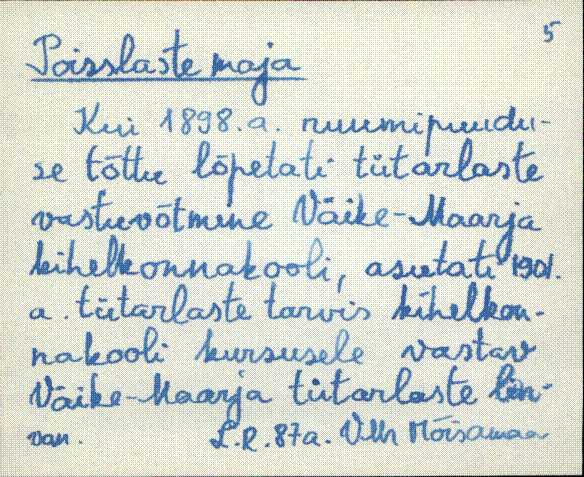 5
Poisslaste maja
Kui 1898.a. ruumipuudu-
se tõttu lõpetati tütarlaste
vastuvõtmine Väike-Maarja
kihelkonnakooli, asutati 1901.
a. tütarlaste tarvis kihelkon-
nakooli kursusele vastav
Väike-Maarja tütarlaste
L.R. 87a. Mõisamaa